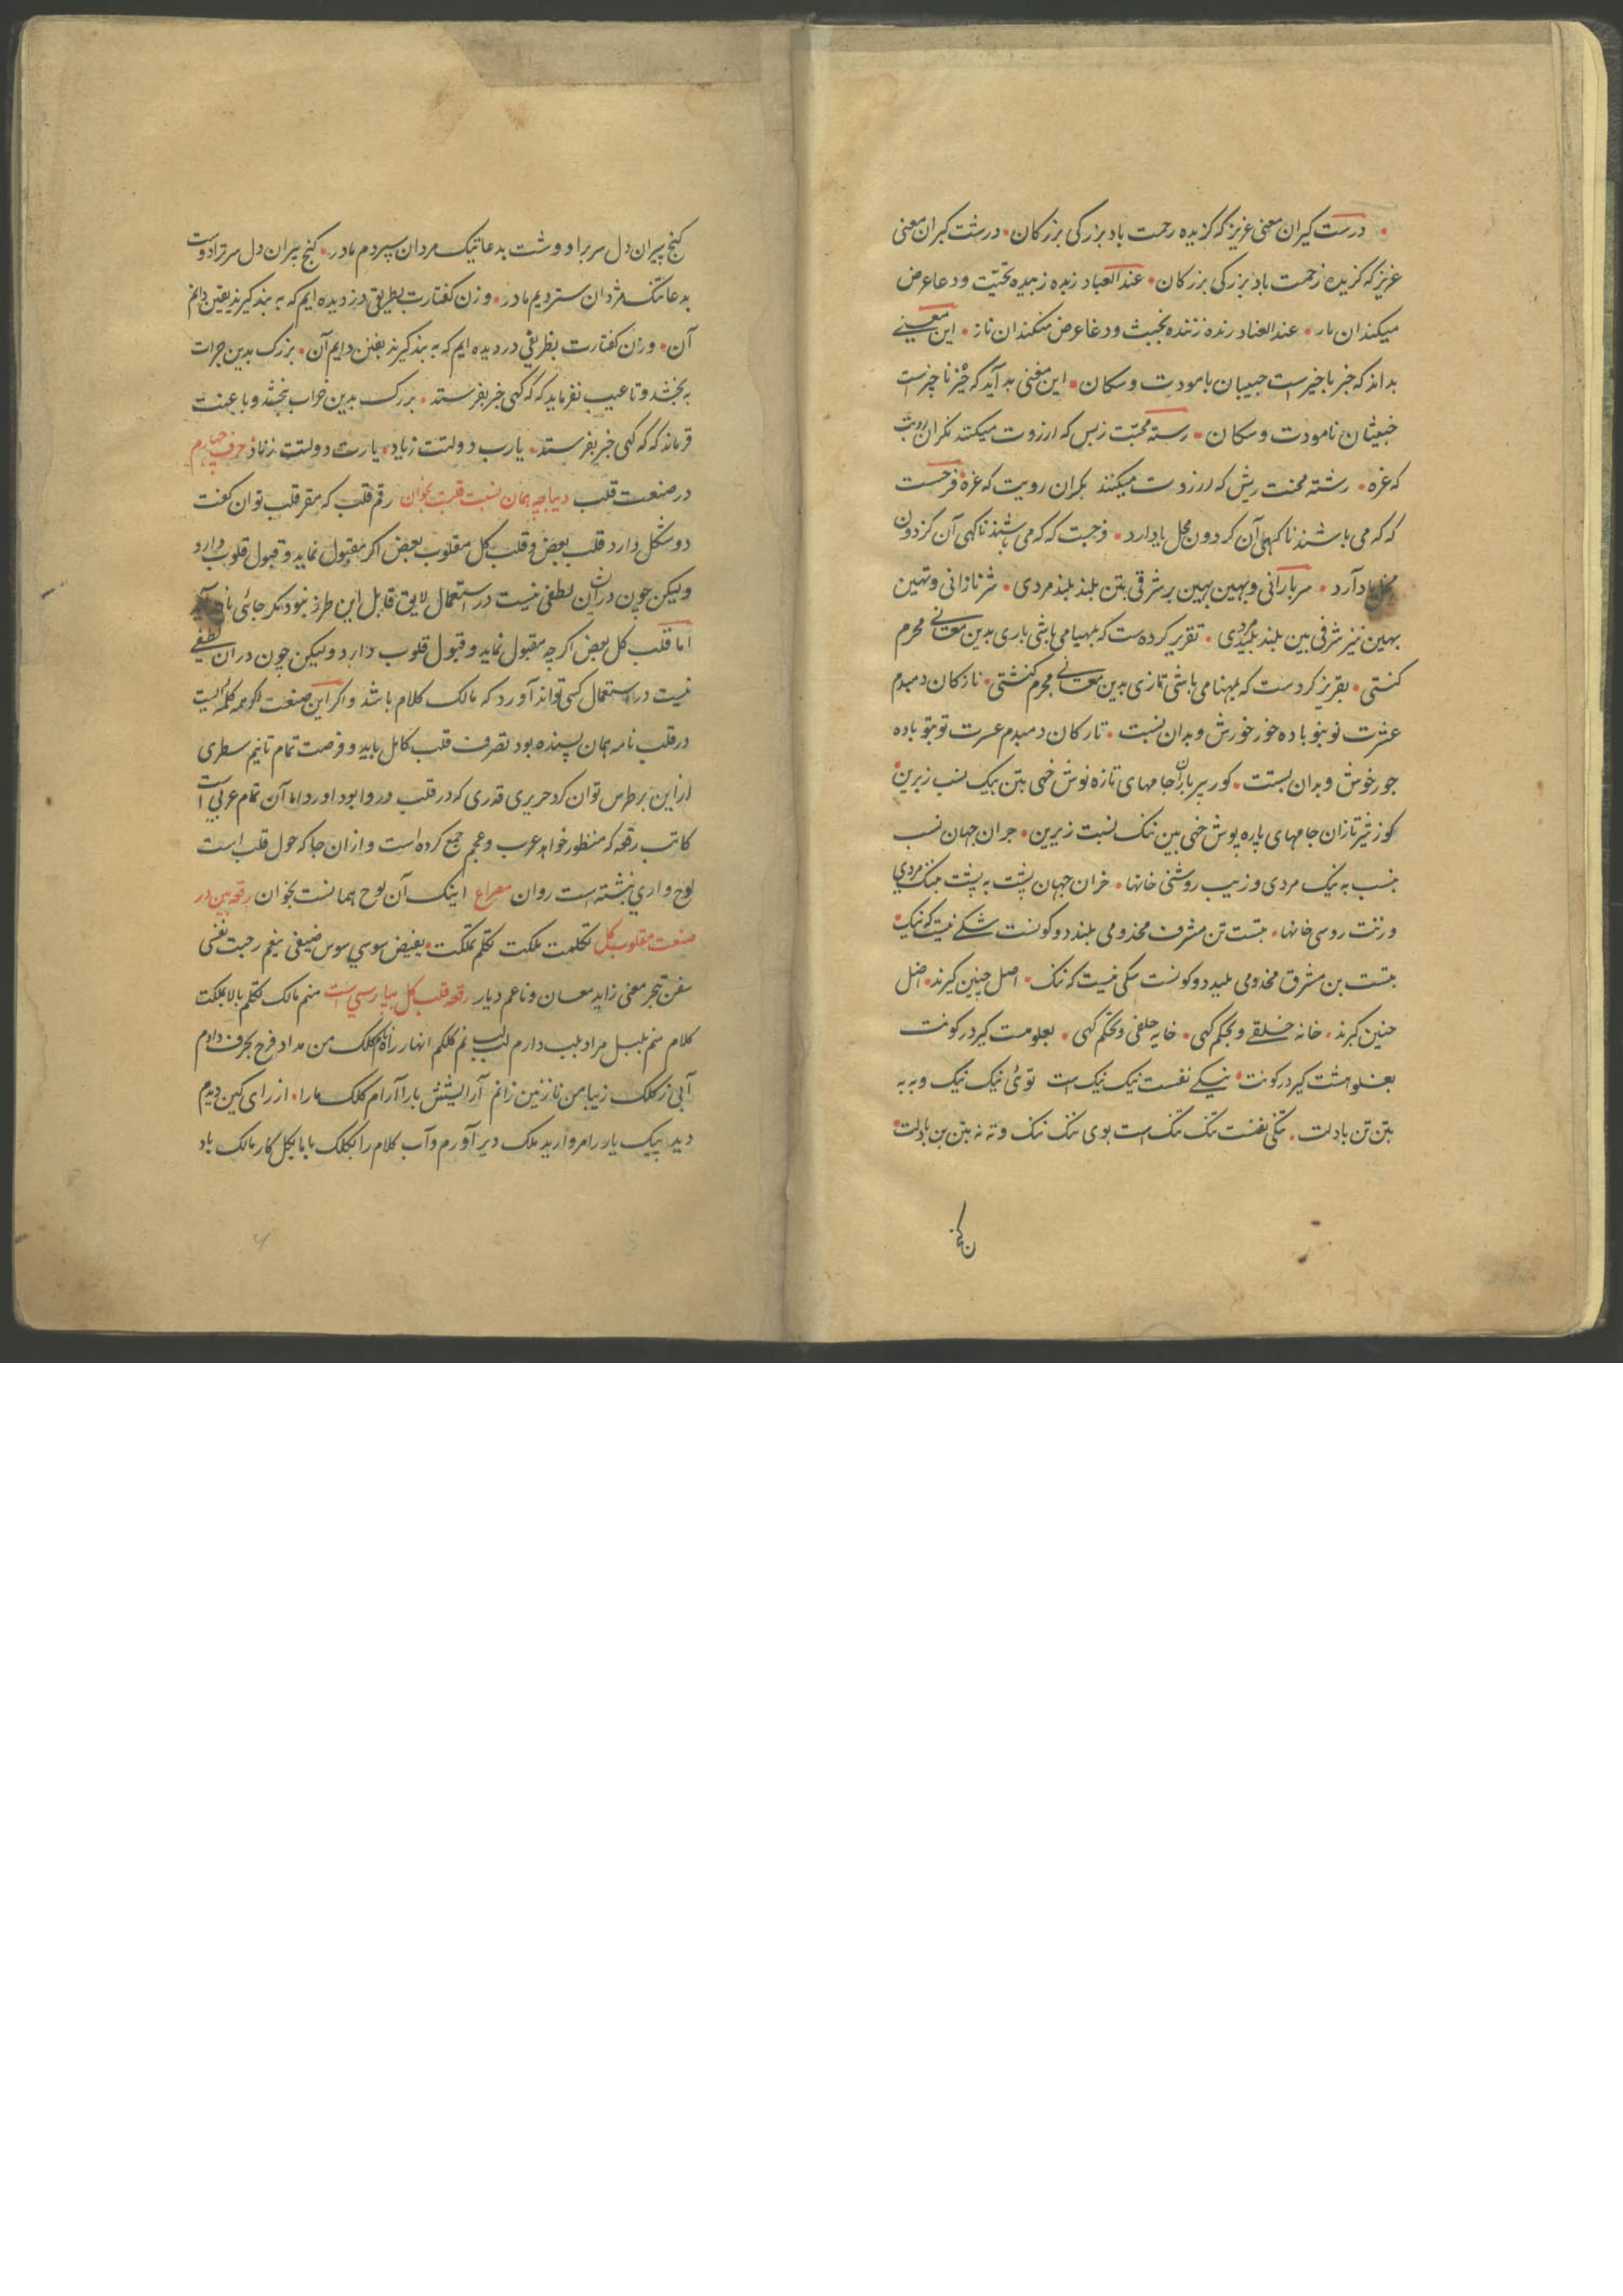 درست کیران معنی عزیز که کزیده رحمت باد بزرکی بزرکان درشت کبران معنی
عزیز که کزیده زحمت باد بزرکی بزرکان عند العباد زبده زبیده تحیت و دعا عرض
میکندان یار عند العناد رنده زننده بخبث و دغا عرض منکندان ناز این معنی
بداند که خبر با خیرست حبیبان با مودت و سکان این مغنی بد آید که خبز ناچیزست
خبیثان نامودت و سکان رسته محبت زبس که ارزوت میکنند نکران رویت
که غره رشته محنت ریش که ارزوت میکنند بکران رویت که عزه فرحست
که که می باشند ناکهی آن کردون محل یاد دارد فرجیت که که می باشند ناکهی آن کزدون
یاد دارد سربارانی و بهین بهین بر شرقی بتن بلند بلند مردی شرنازانی و تهین
بهین نیز شرفی بین بلند بلید مردی تقریر کرده ست که بلهیا می باشی باری بدین معانی محرم
کنستی بقریز کردست که بلهنا می باشی تازی بدین معانی مجرم کنشتی نازکان دمبدم
عشرت نو بنو باده خور خورش و بدان نسبت تارکان دمبدم عسرت تو بتو باده
جور خوش و بدان بستت کور پیر باران جامهای تازه نوش خهی بتن بیک نسب زبرین
کوز شیر تازان جامهای پاره پوش خنی بین ننک نسبت زیرین جران جهان نسب
بنسب به نیک مردی و زیب روشنی خانها خران جهان پشت به پشت بننک مردی
و زنت روسی خانها بتست تن مشرف مخدومی بلند دو کونست شکی نیست که نیک
بتست بن مشرق مخدومی بلید دو کونست سکی نیست که ننک اصل چنین کیرند اصل
حنین کیرند خانه خلقی و بحکم کهی خایه حلقی و بحکم کهی بعلومت کیر در کونت
بغلومشت کیر در کونت نیکی نفست نیک نیک است توئی نیک نیک و به به
بتن تن بادلت تنکی نفنت تنک تنک است بوی ننک ننک و نه نه بتن بن بادلت
کنج پیران دل سربراد و شت بدعا نیک مردان سپردم مادر کنج پیران دل سرتراد وست
بدعا ننک مردان ستردیم مادر وزن کفتارت بطریق دزدیده ایم که به بند کیرند یقین دایم
آن وزن کفتارت بطریقی دردیده ایم که به بند کیرند بفنن دایم آن بزرک بدین جرات
به بخشد و تا عیب نفرماید که که کهی خبر بفرستد بزرک بدین خراب بخشد و با عنت
فرماید که که کهی خبر بفرستد یارب دولتت زیاد یارت دولتت زناد حرف چهارم
در صنعت قلب دیباچه همان نسبت قلبت بخوان رقم قلب که مقر قلب توان کفت
دو شکل دارد قلب بعض و قلب کل مقلوب بعض اکر مقبول نماید و قبول قلوب دارد
ولیکن چون دران لطفی نیست در استعمال لایق قابل این طرز نبود مکر جائی
اما قلب کل بعض اکرچه مقبول نماید و قبول قلوب دارد ولیکن چون دران لطفی
نیست در استعمال کسی تواند آورد که مالک کلام باشد و اکر این صنعت اکرچه کله ایست
در قلب نامه همان پسنده بود تصرف قلب کامل باید و فرصت تمام تا نیم سطری
ازین بر طرس توان کرد حریری قدری که در قلب در وا بود آورد اما آن تمام عربی است
کاتب رقعه که منظور خواهد عرب و عجم جمع کرده است و ازان جا که حول قلب است
لوح واری نبشته است روان مصراع اینک آن لوح همانست بخوان رقعه بین در
صنعت مقلوب کل تکلمت ملکت تکلم تملکت بفیض سوسی سوس ضیفی بنعم رحبت نفسی
سفن تبحر معنی زاید معسان و ناعم دیار رقعه قلب کل بپارسی است منم مالک تکلم بالا بملکت
کلام منم بلبل مراد بلب دارم لب بنم کلکم انهار راه کلک من مداد فرح بحرف دادم
آبی ز کلک زیبا من نازنین زانم آرایشش یارا آرام کلک مارا از رای کین دیدم
دید پیک یار رامروارید ملک دیر آورم و آب کلام را بکلک یا مالک کل کار مالک باد